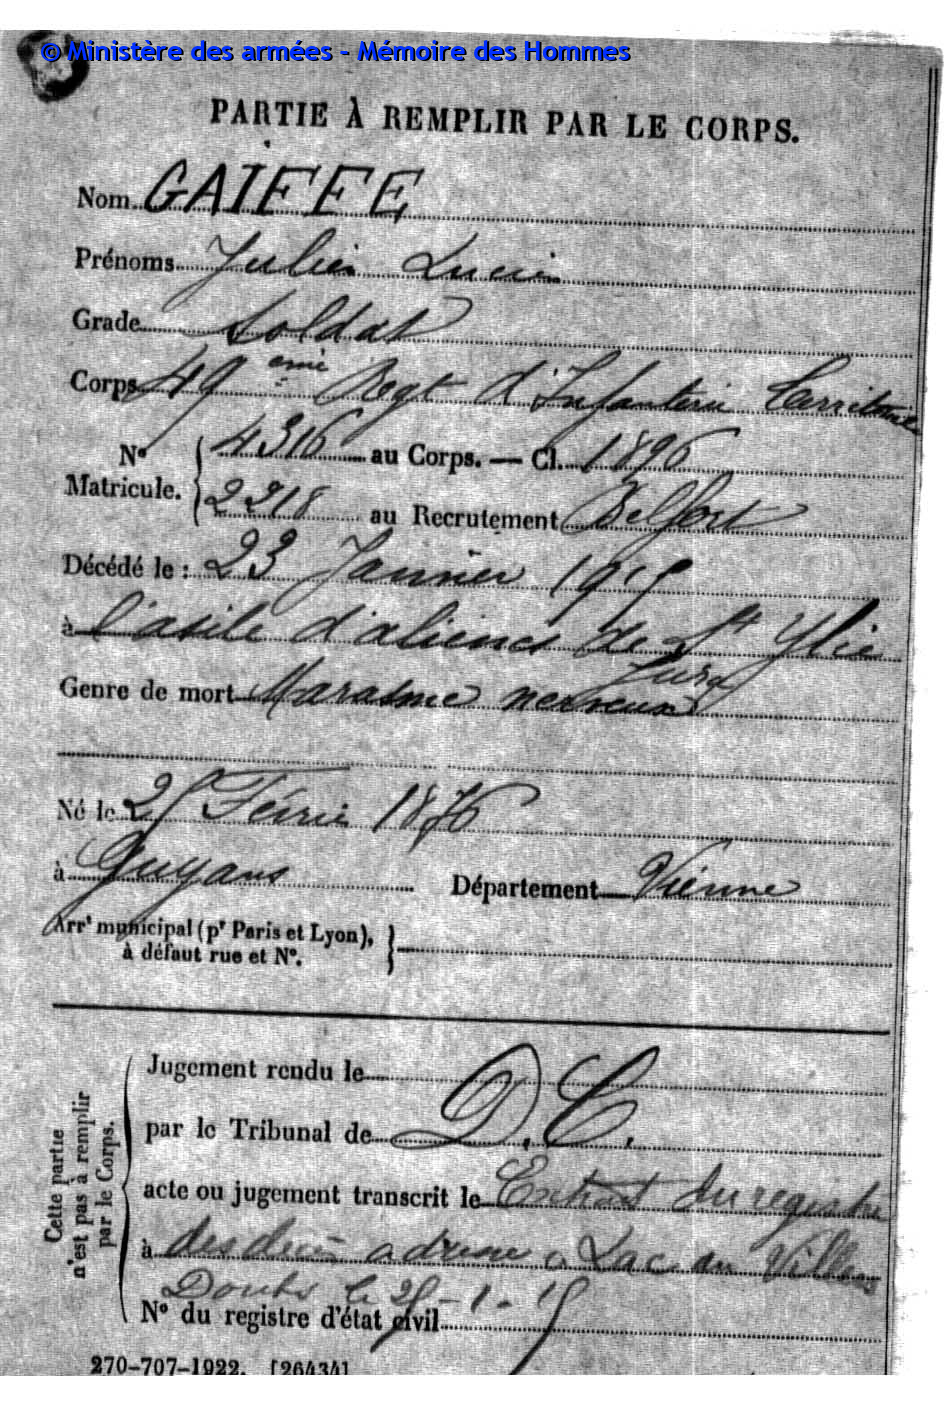 © Ministère des armées - Mémoire des Hommes
PARTIE À REMPLIR PAR LE CORPS.
Nom GAIFFE
Prénoms Julien Lucien
Grade Soldat
Corps 49 eme Regt d'Infanterie Territoriale
N° Matricule. { 4316 au Corps. — Cl. 1896
2218 au Recrutement Belfort
Décédé le : 23 Janvier 1915
à l'asile d'aliénés de St Ylie
Jura
Genre de mort Marasme nerveux
Né le 25 Février 1876
à Guyans Département Vienne
Arrt municipal (pr Paris et Lyon),
à défaut rue et N°.
Cette partie
n'est pas à remplir
par le Corps.
Jugement rendu le
par le Tribunal de D.C.
acte ou jugement transcrit le Extrait du registre
à des décès adressé a Lac ou Villers
Doubs le 25-1-15
N° du registre d'état civil
270-707-1922. [26434]